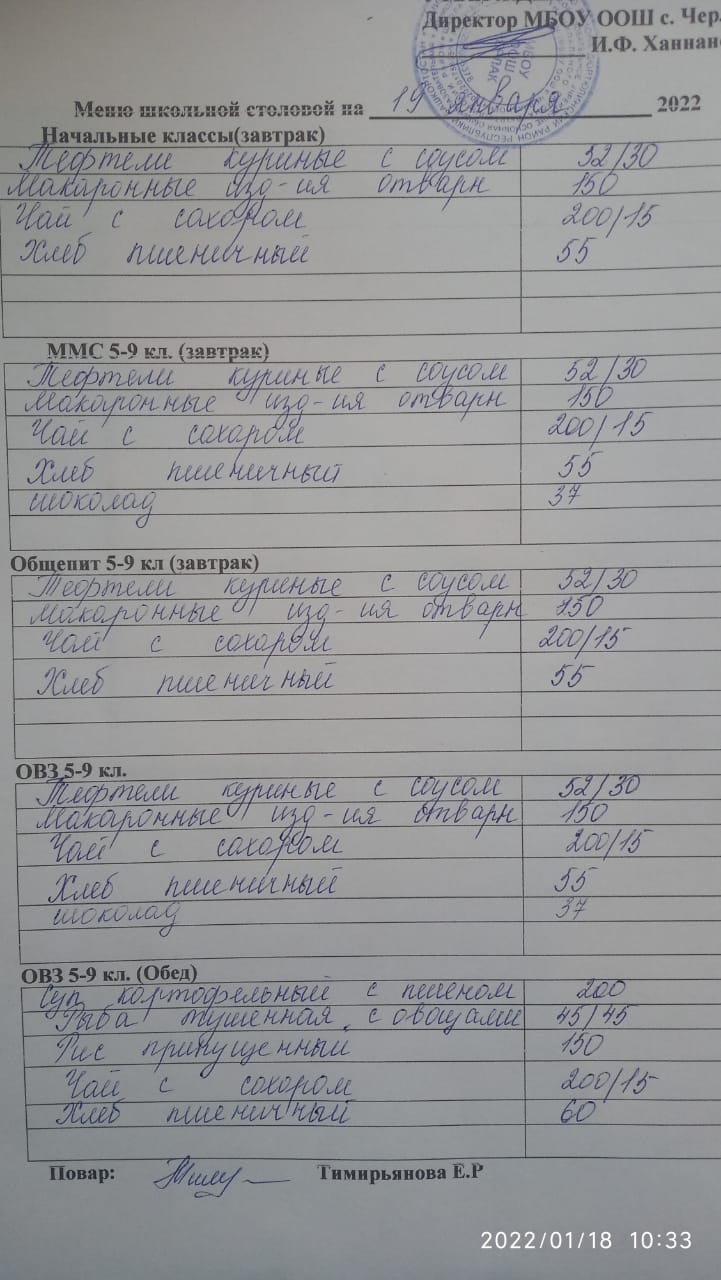 Директор МБОУ ООШ с. Чер
И.Ф. Ханнан
Меню школьной столовой на 19 января 2022
Начальные классы(завтрак)
Тефтели куриные с соусом 52/30
Макаронные изд-ия отварн 150
Чай с сахором 200/15
Хлеб пшеничный 55
ММС 5-9 кл. (завтрак)
Тефтели куриные с соусом 52/30
Макаронные изд-ия отварн 150
Чай с сахором 200/15
Хлеб пшеничный 55
шоколад 37
Общепит 5-9 кл (завтрак)
Тефтели куриные с соусом 52/30
Макаронные изд-ия отварн 150
Чай с сахором 200/15
Хлеб пшеничный 55
ОВЗ 5-9 кл.
Тефтели куриные с соусом 52/30
Макаронные изд-ия отварн 150
Чай с сахором 200/15
Хлеб пшеничный 55
шоколад 37
ОВЗ 5-9 кл. (Обед)
Суп кортофельный с пшеном 200
Рыба тушенная с овощами 45/45
Рис припущенный 150
Чай с сохором 200/15
Хлеб пшеничный 60
Повар: Тимирьянова Е.Р
2022/01/18 10:33